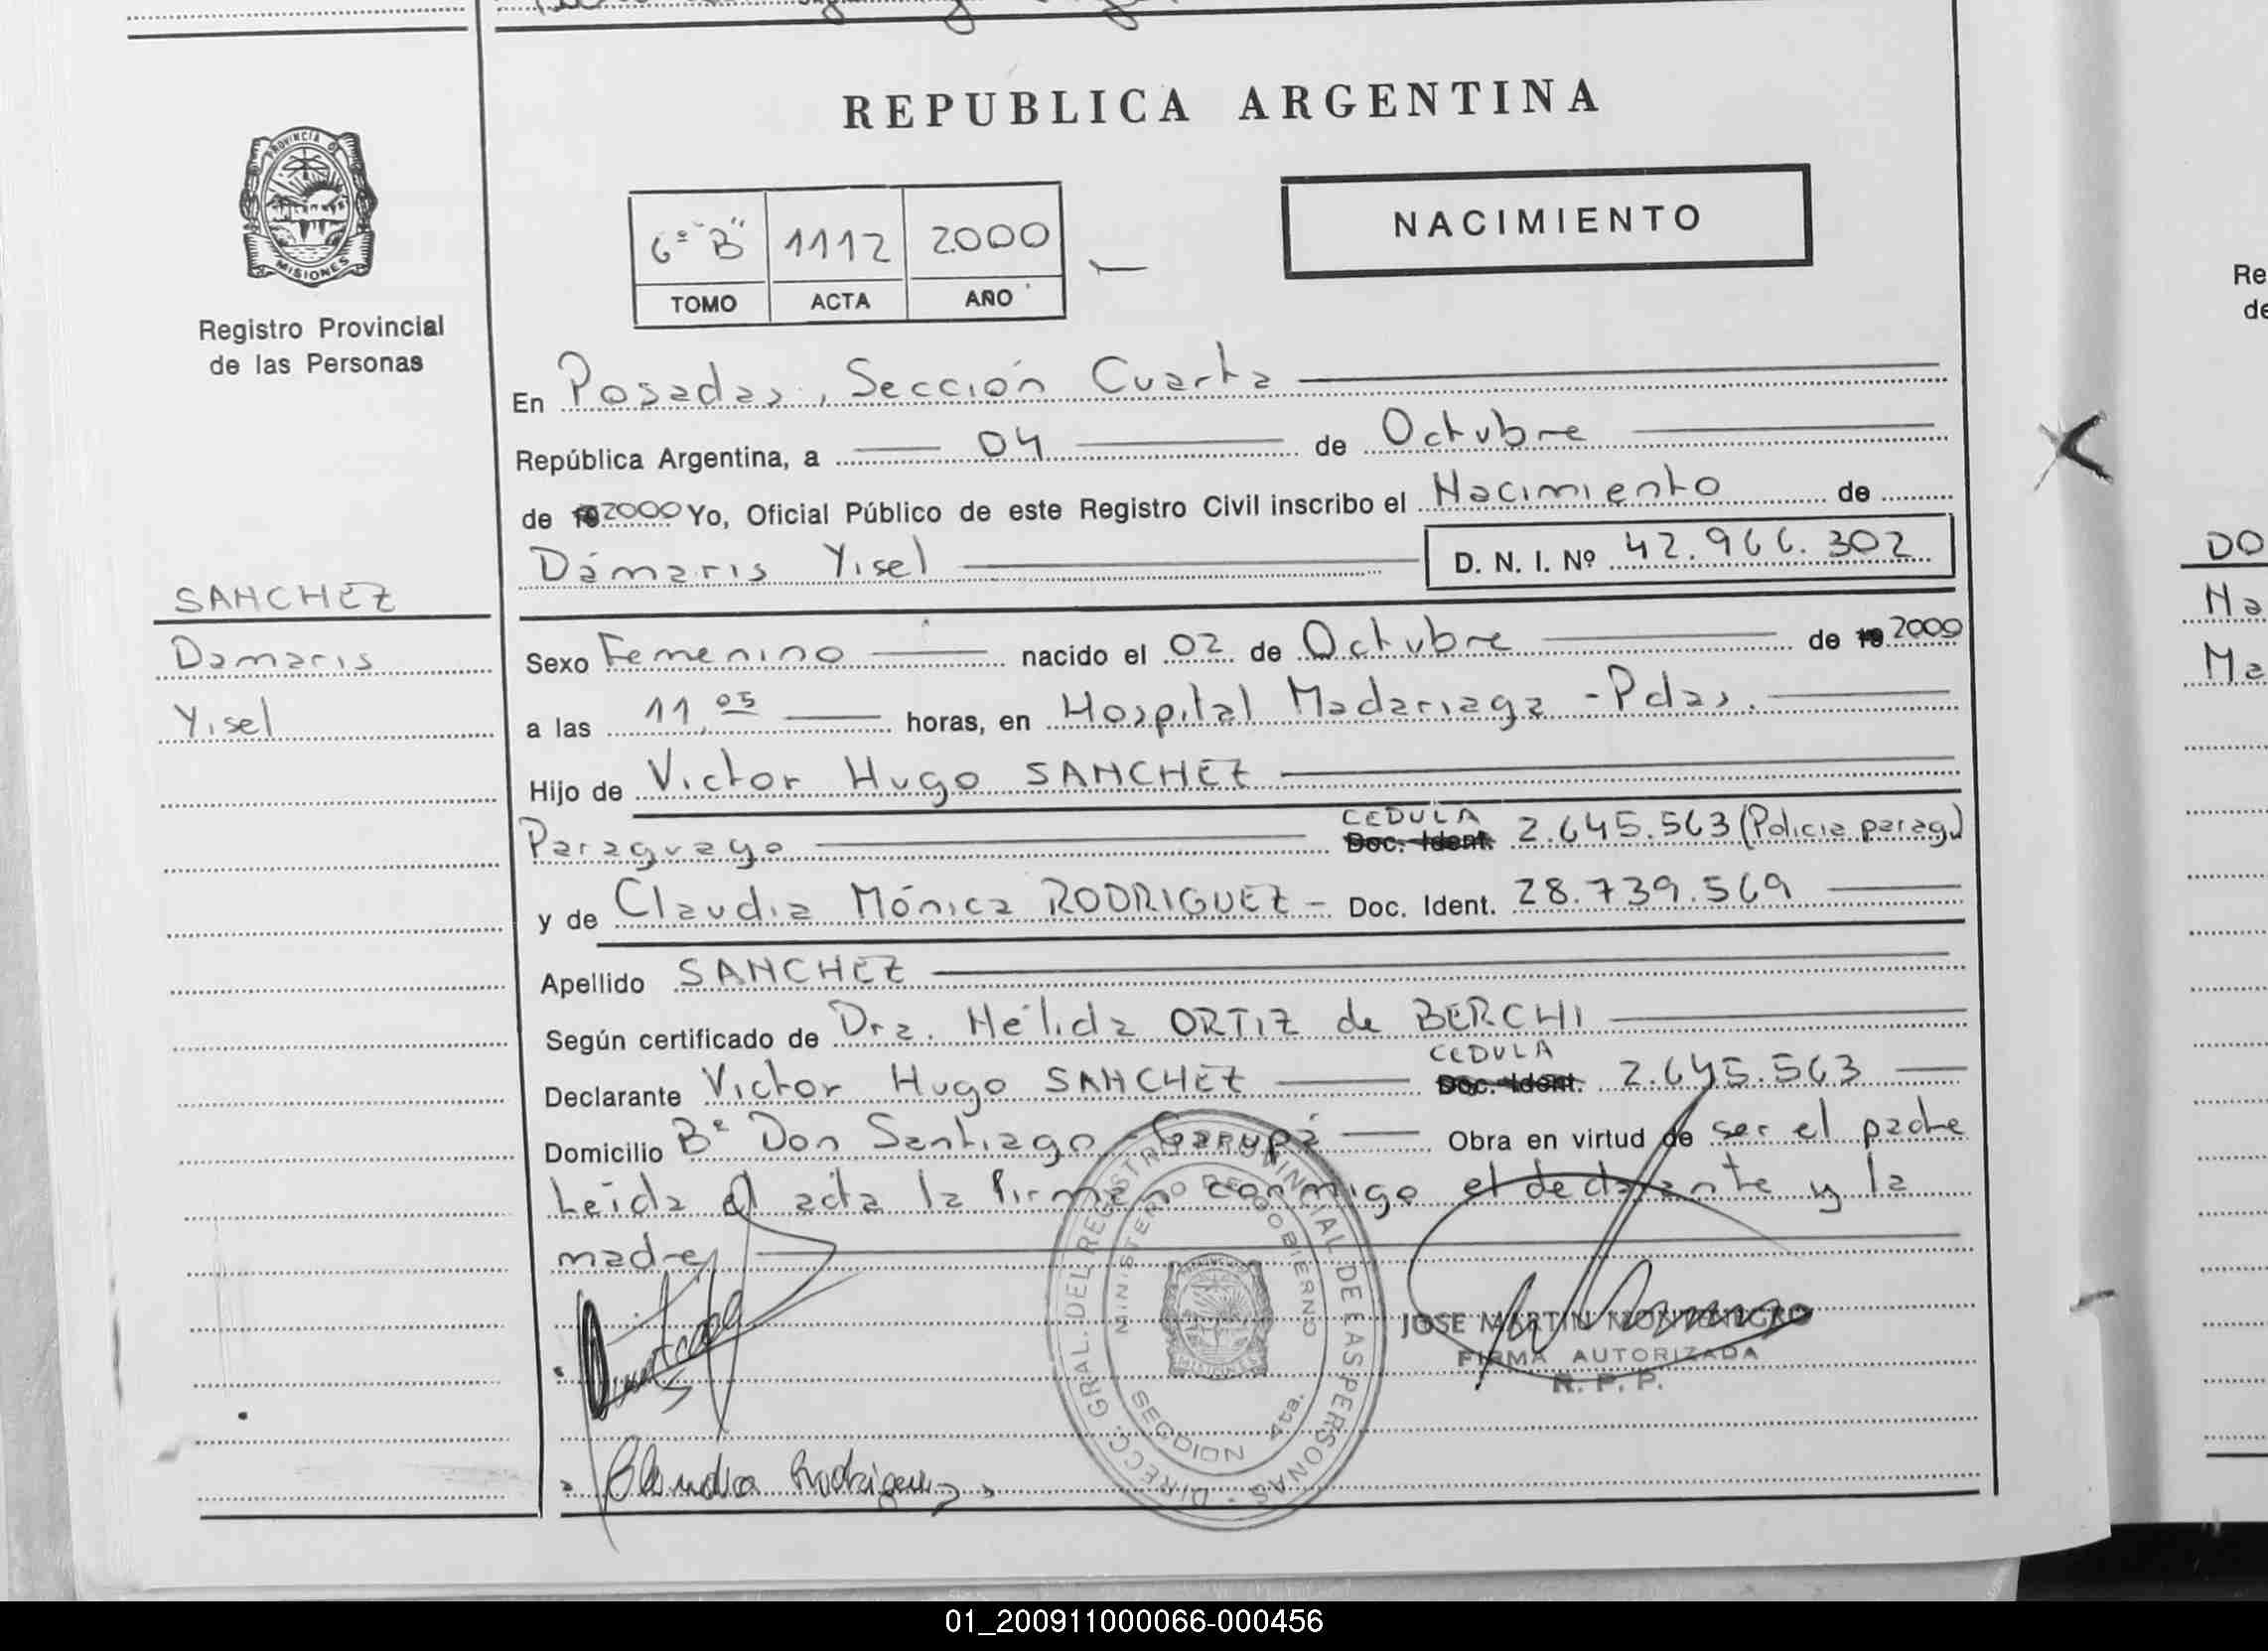 REPUBLICA ARGENTINA
PROVINCIA D
MISIONES
Registro Provincial
de las Personas
6º "B" 1112 2000
TOMO ACTA AÑO
NACIMIENTO
En Posadas, Sección Cuarta
República Argentina, a 04 de Octubre
de 19 2000 Yo, Oficial Público de este Registro Civil inscribo el Nacimiento de
Dámaris Yisel D. N. I. Nº 42.966.302
SANCHEZ
Damaris
Yisel
Sexo Femenino nacido el 02 de Octubre de 19 2000
a las 11,05 horas, en Hospital Madariaga - Pdas.
Hijo de Victor Hugo SANCHEZ
CEDULA
Paraguayo Doc. Ident. 2.645.563 (Policia parag.)
y de Claudia Mónica RODRIGUEZ - Doc. Ident. 28.739.569
Apellido SANCHEZ
Según certificado de Dra. Nélida ORTIZ de BERCHI
CEDULA
Declarante Victor Hugo SANCHEZ Doc. Ident. 2.645.563
Domicilio Bº Don Santiago - Garupá Obra en virtud de ser el padre
Leída el acta la firman conmigo el declarante y la
madre
DIRECC. GRAL. DEL REGISTRO PROVINCIAL DE LAS PERSONAS
MINISTERIO DE GOBIERNO
MISIONES
SECCION 4ta.
JOSE MARTIN MONTENEGRO
FIRMA AUTORIZADA
R. P. P.
Claudia Rodriguez
Re
de
DO
Na
Ma
01_200911000066-000456